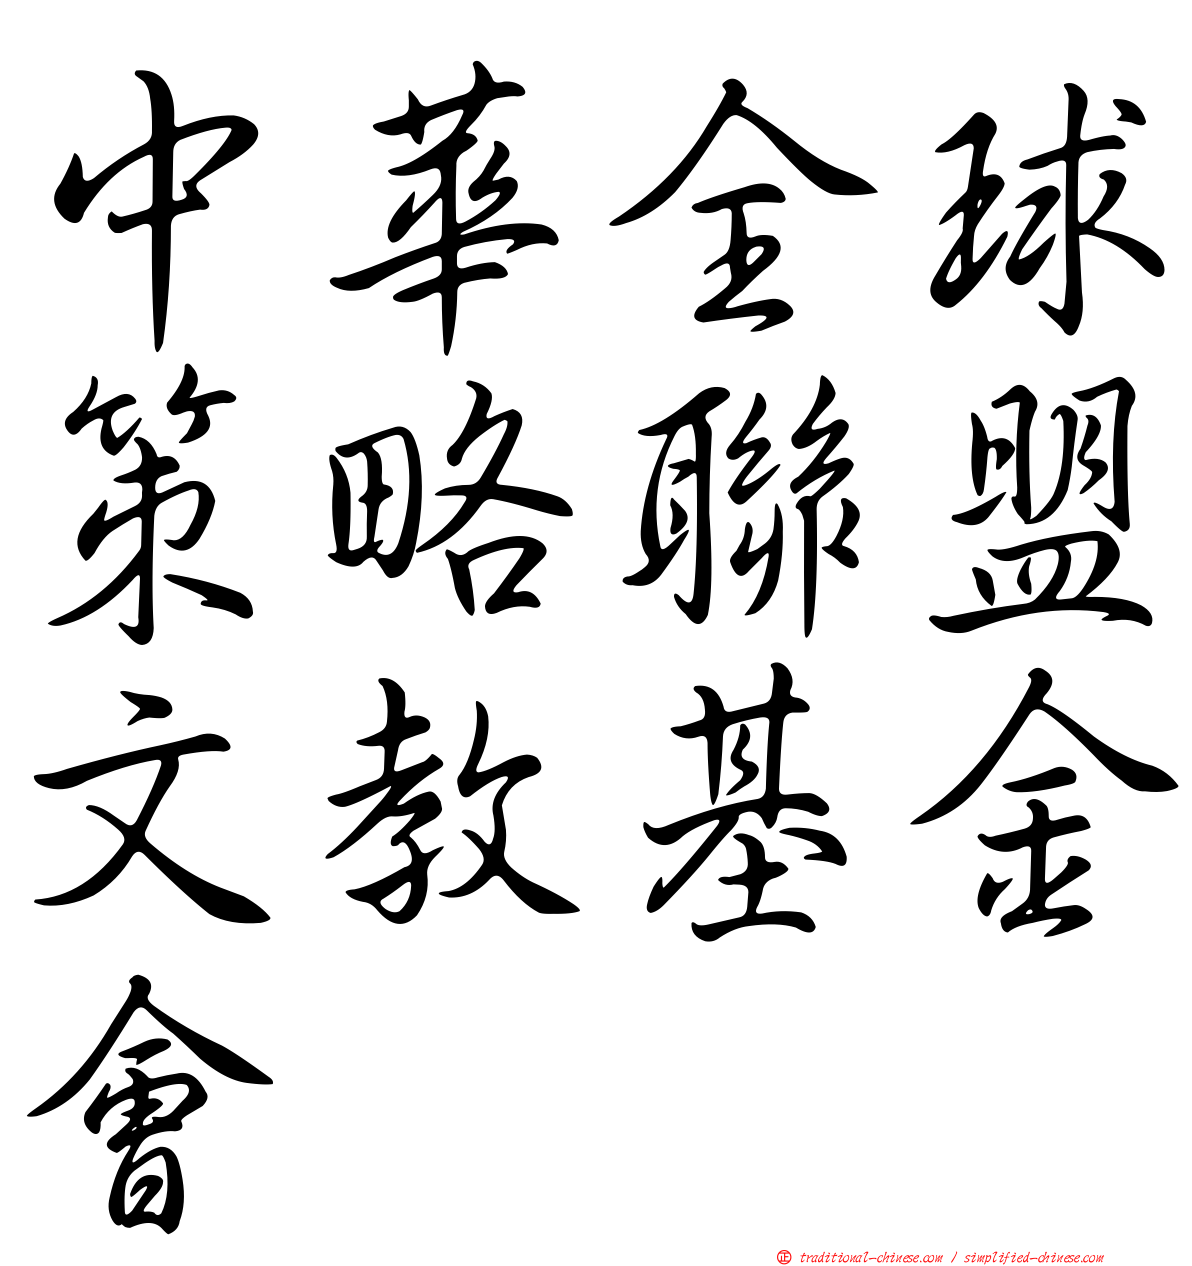 中華全球
策略聯盟
文教基金
會
正 traditional-chinese.com / simplified-chinese.com